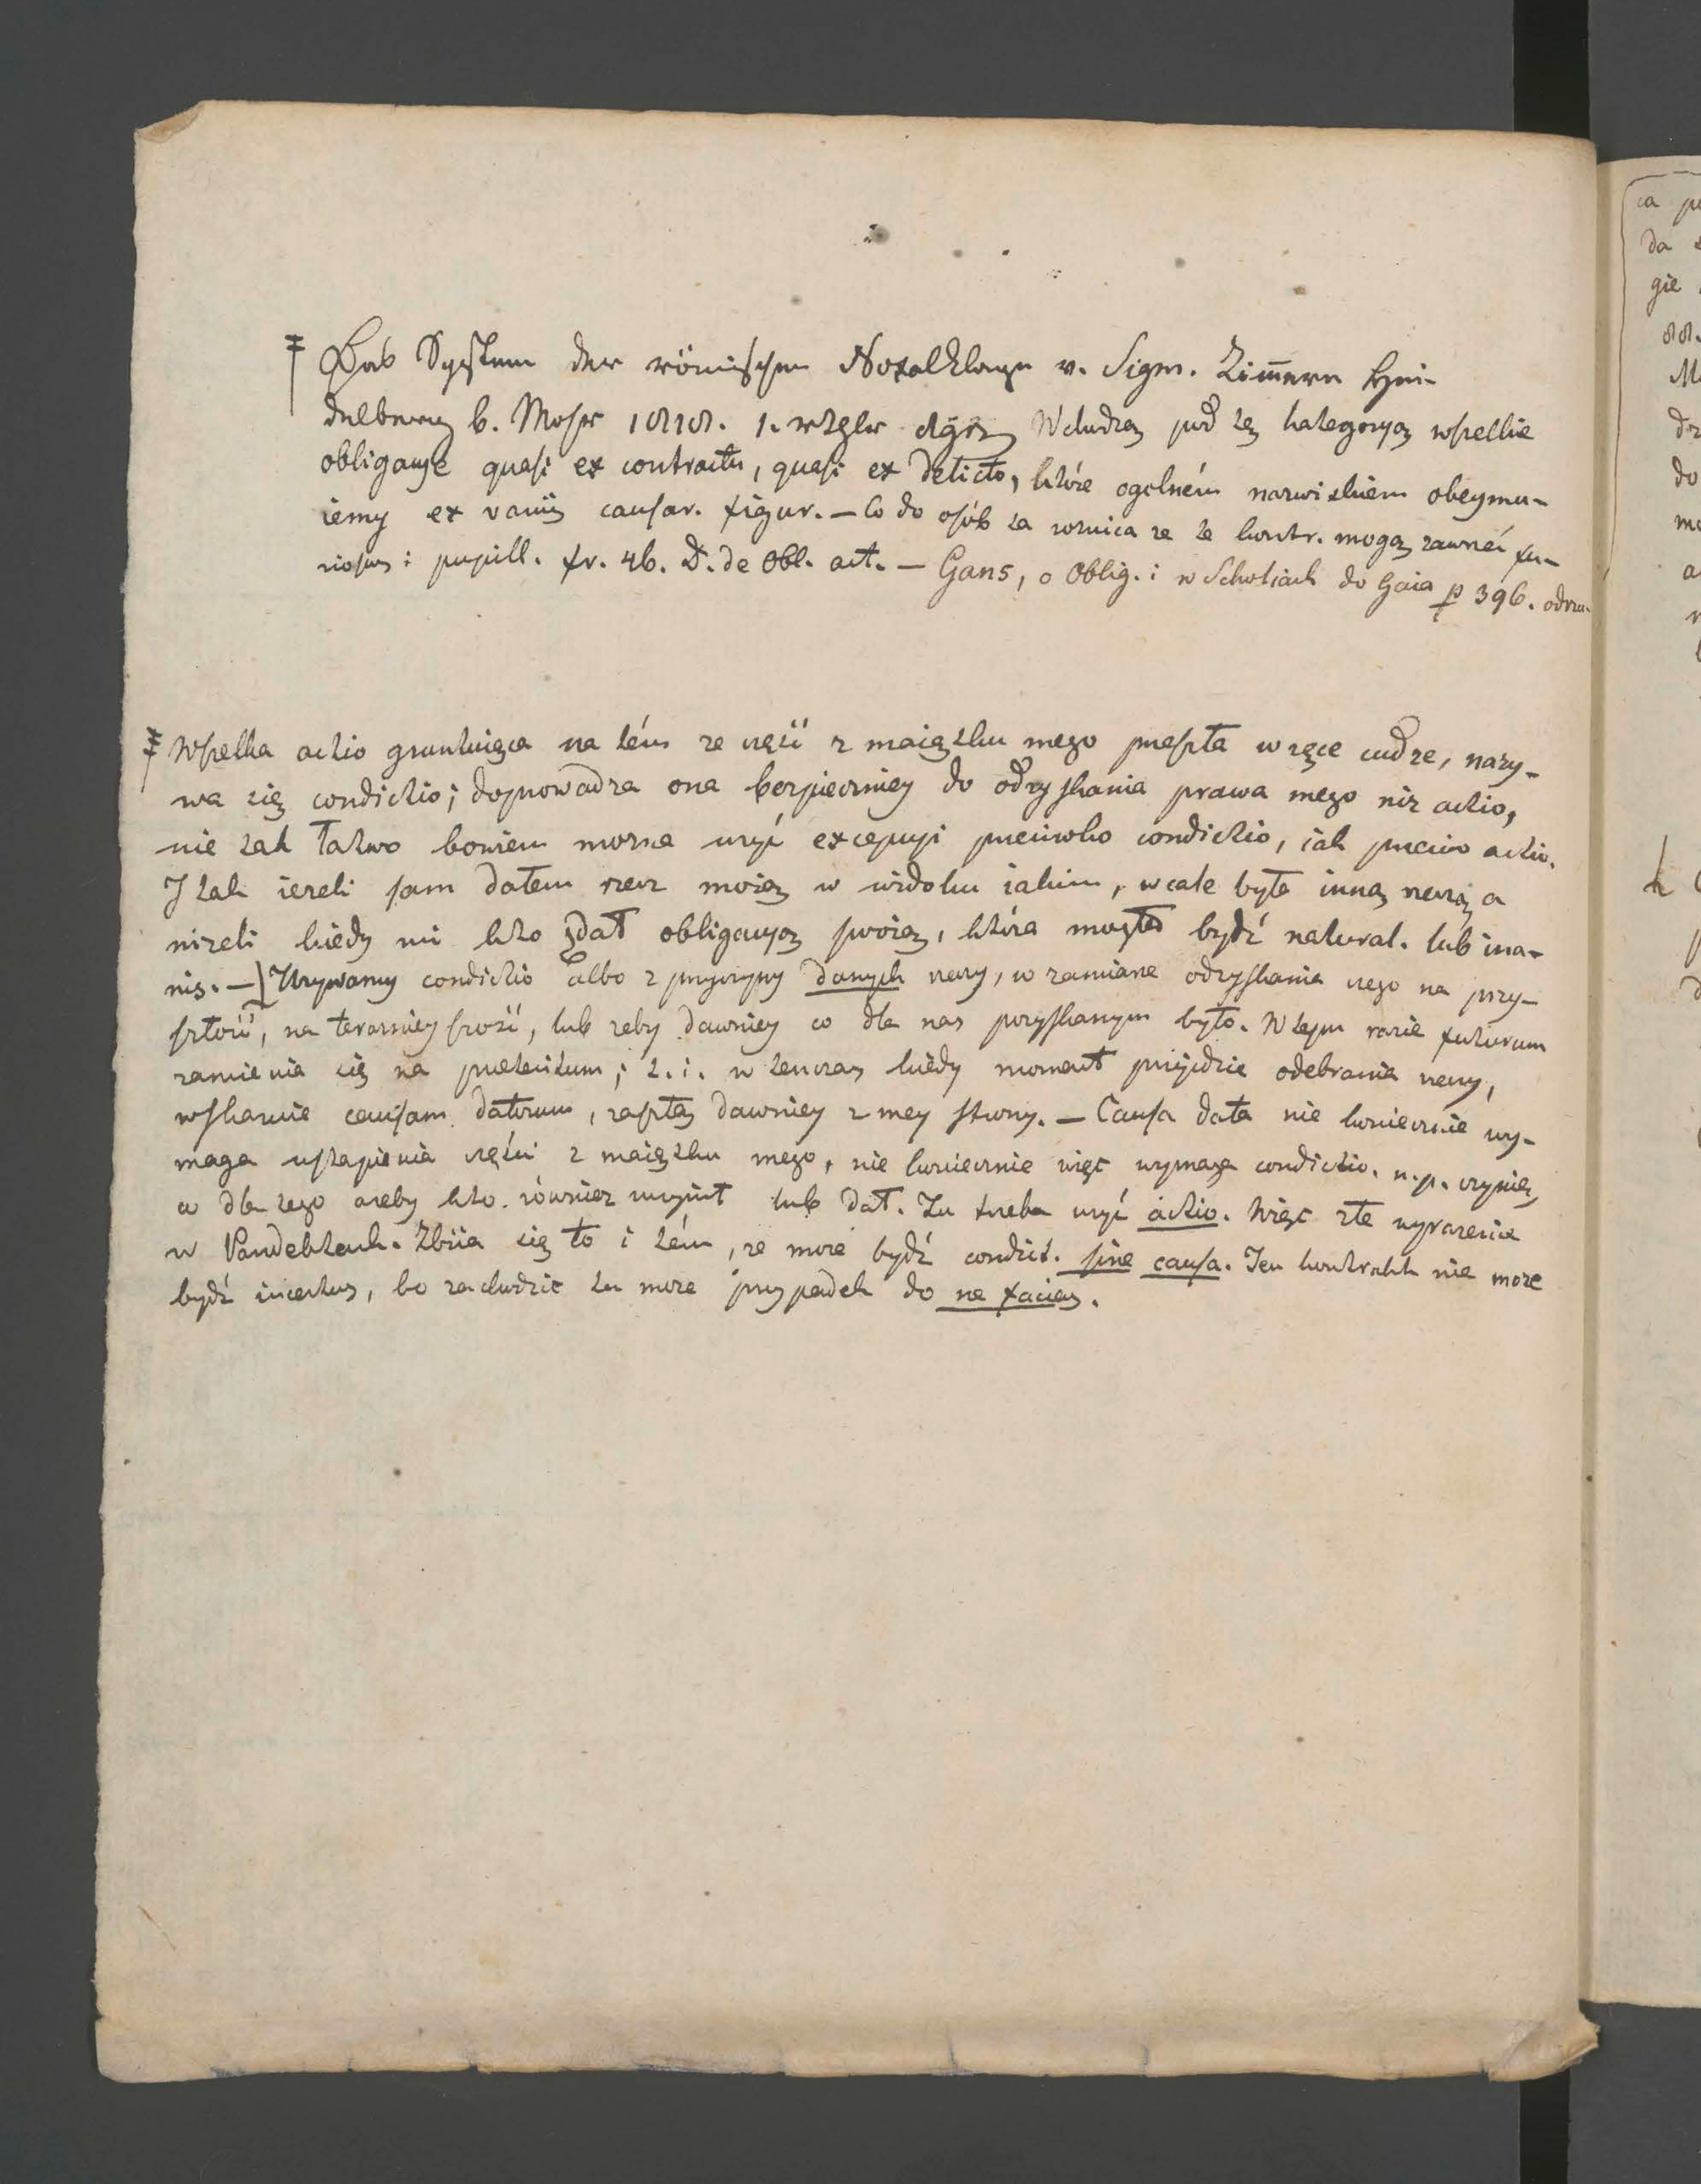 Das System der römischen Noxalklagen v. Sigm. Zim̅ern Hei-
delberg b. Mohr 1818. Wchodzą pod tę kategoryą wszelkie
obligacye quasi ex contractu, quasi ex delicto, które ogolném nazwiskiem obeymu-
iemy ex variis causar. figur. — Co do osób ta roznica ze te kontr. mogą zawrzéć fu-
riosus i pupill. fr. 46. D. de Obl. act. — Gans, o Oblig. i w Scholiach do Gaia p 396. odrzu-
Wszelka actio gruntuięca na tém ze część z maiątku mego przeszła w ręce cudze, nazy-
wa się condictio; doprowadza ona bezpieczniey do odzyskania prawa mego niz actio,
nie tak łatwo bowiem mozna uzyć excepcyi przeciwko condictio, iak przeciw actio.
I tak iezeli sam dałem rzecz moią w widoku iakim, wcale była inną rzeczą a
nizeli kiedy mi kto zdał obligacyą swoią, która mogła bydź natural. lub ina-
nis. — Uzywamy condictio albo z przyczyny danych rzeczy, w zamiane odzyskania czego na przy-
szłość, na teraznieyszość, lub zeby dawniey co dla nas pozyskanym było. W tym razie futurum
zamienia się na praeteritum; t. i. w tenczas kiedy moment przyidzie odebrania rzeczy,
wskazuie causam datorum, zaszłą dawniey z mey strony. — Causa data nie koniecznie wy-
maga ustąpienia części z maiątku mego, nie koniecznie więc wymaga condictio. n.p. czynię
co dla tego azeby kto również uczynił lub dał. Tu trzeba uzyć actio. Więc złe wyrazenie
w Pandektach. Zbiia się to i tém, ze moze bydź condict. sine causa. Ten kontrakt nie moze
bydź incertus, bo zachodzić tu moze przypadek do ne facias.